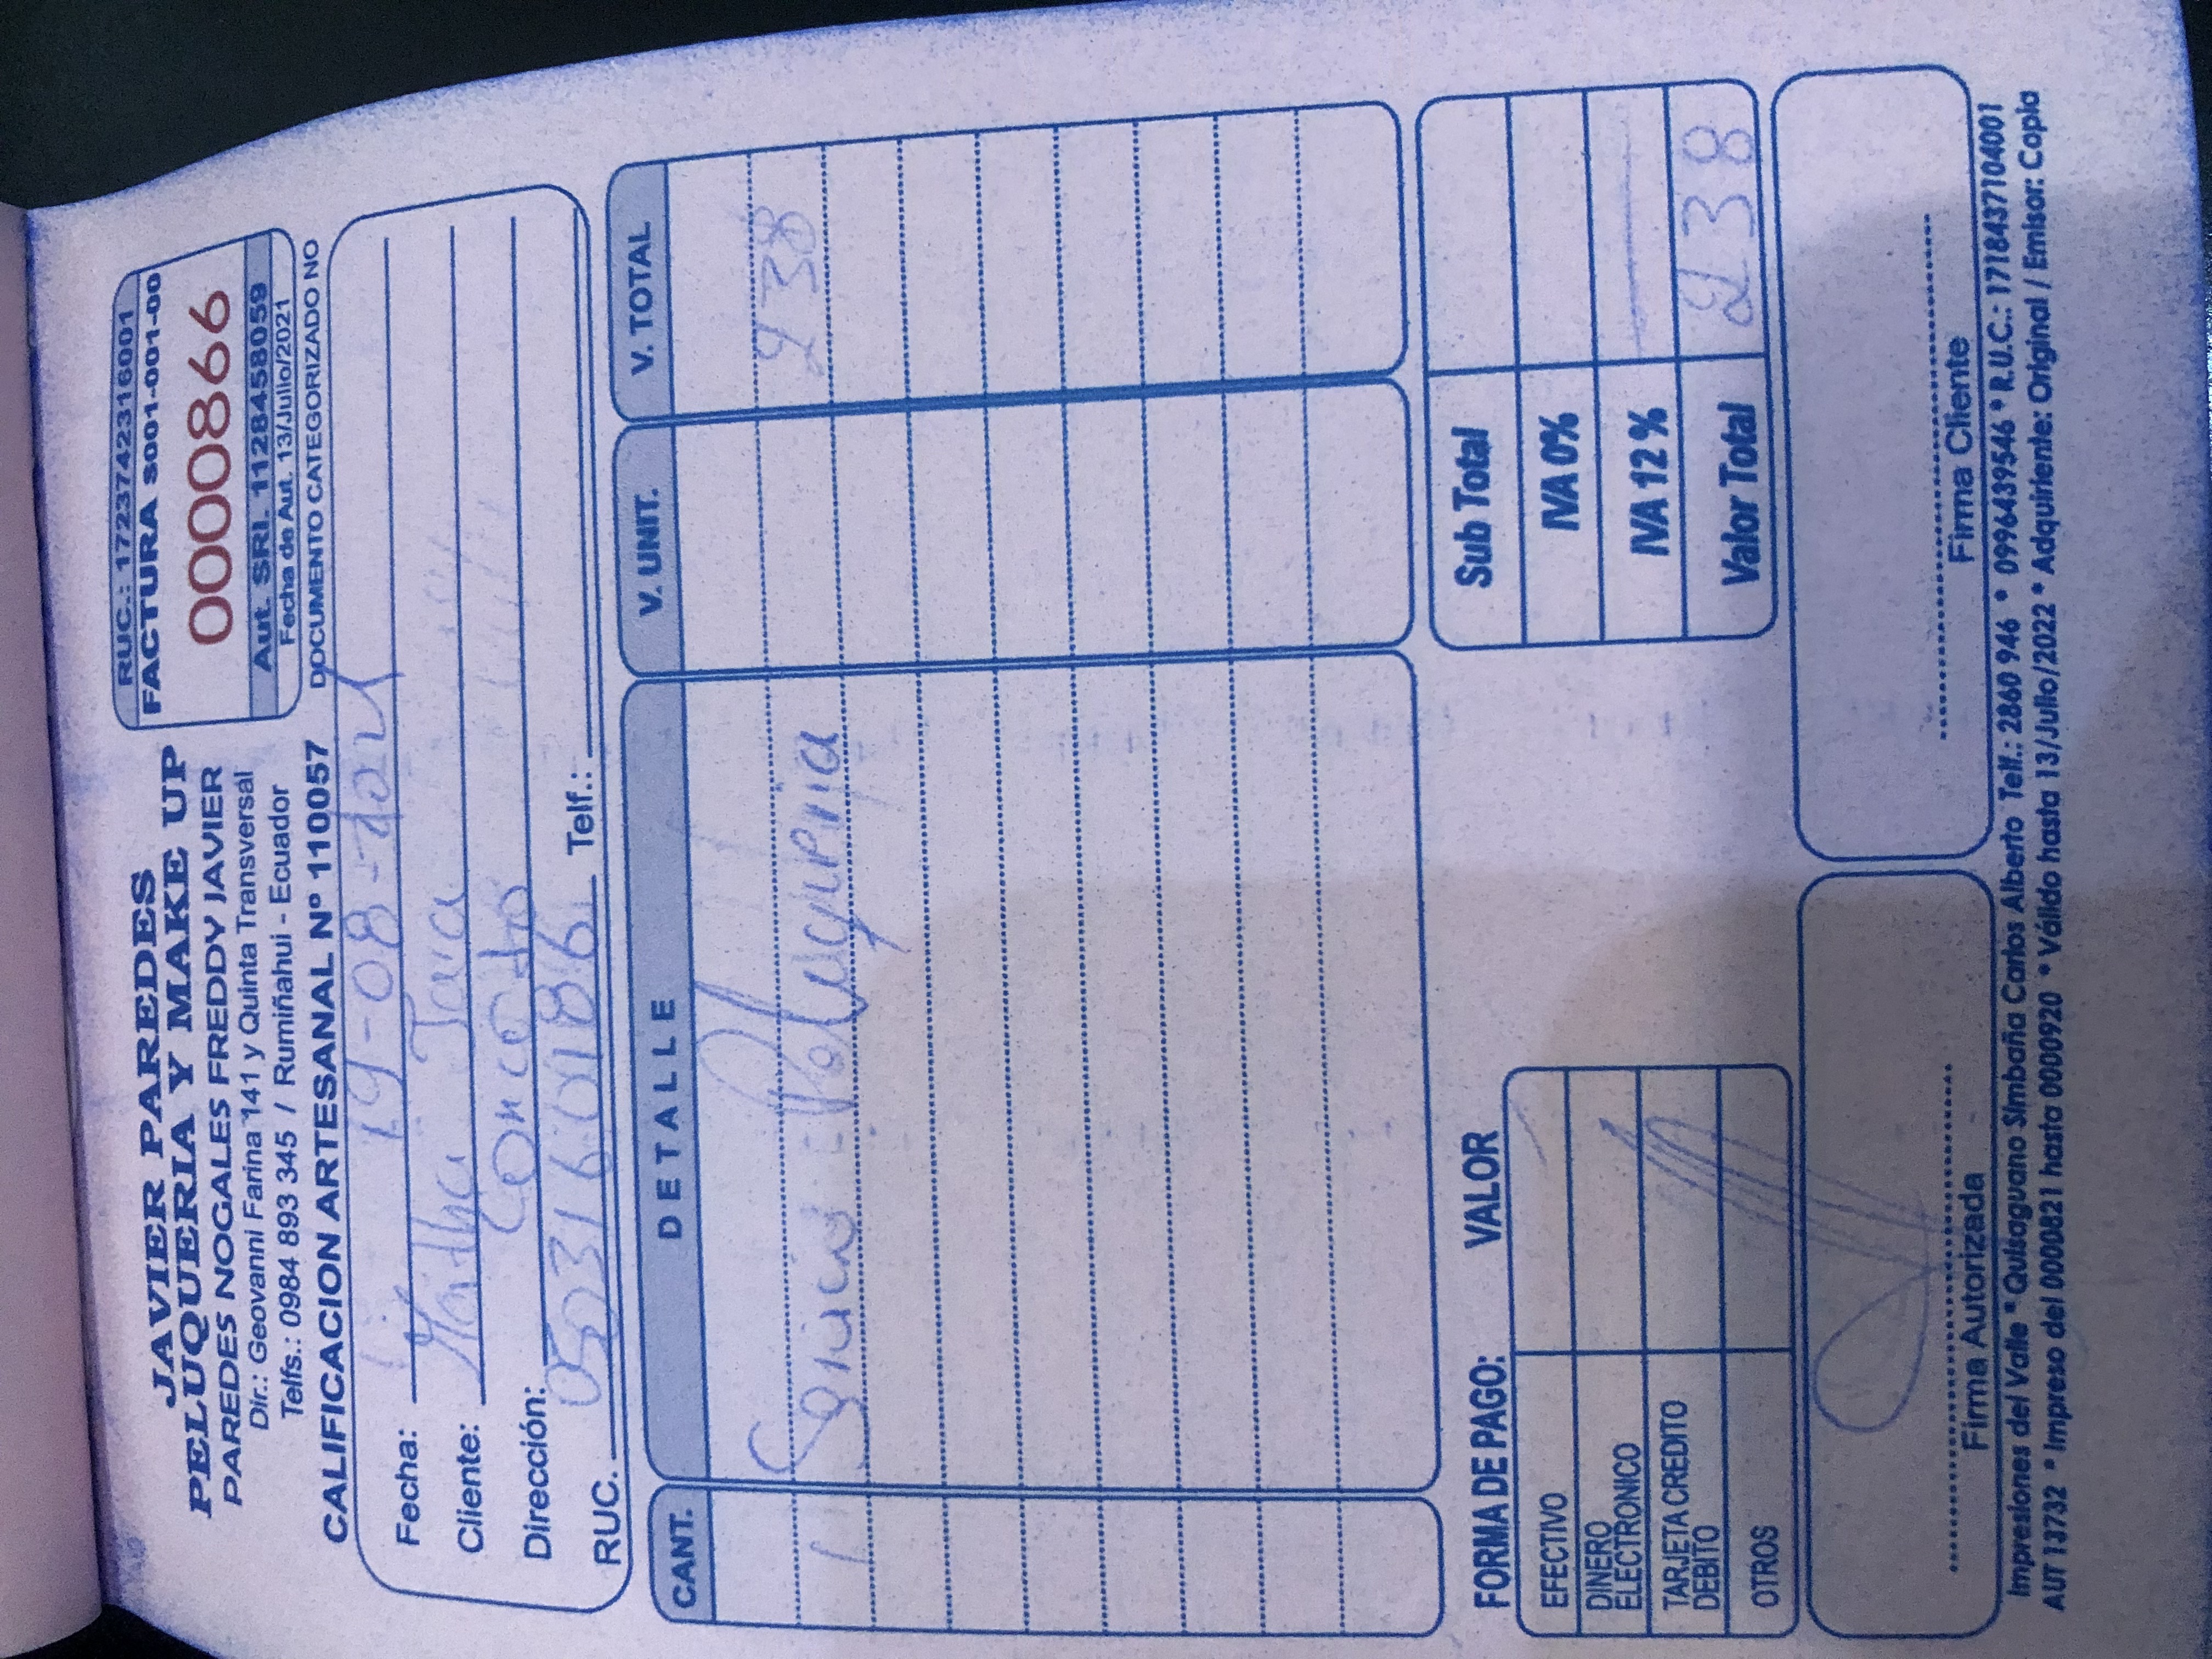 JAVIER PAREDES
PELUQUERIA Y MAKE UP
PAREDES NOGALES FREDDY JAVIER
Dir.: Geovanni Farina 141 y Quinta Transversal
Telfs.: 0984 893 345 / Rumiñahui - Ecuador
CALIFICACION ARTESANAL Nº 110057
RUC.: 1723742316001
FACTURA S001-001-00
0000866
Aut. SRI. 1128458059
Fecha de Aut. 13/Julio/2021
DOCUMENTO CATEGORIZADO NO
Fecha: 19-08-2021
Cliente: Martha Jara
Dirección: Conocoto
RUC. 0503160186 Telf.:
CANT. DETALLE V. UNIT. V. TOTAL
1 Servicio Peluqueria 238
FORMA DE PAGO: VALOR
EFECTIVO
DINERO ELECTRONICO
TARJETA CREDITO DEBITO
OTROS
Sub Total
IVA 0%
IVA 12 %
Valor Total 238
Firma Autorizada
Firma Cliente
Impresiones del Valle * Quisaguano Simbaña Carlos Alberto Telf.: 2860 946 * 0996439546 * R.U.C.: 1718437104001
AUT 13732 * Impreso del 0000821 hasta 0000920 * Válido hasta 13/Julio/2022 * Adquiriente: Original / Emisor: Copia